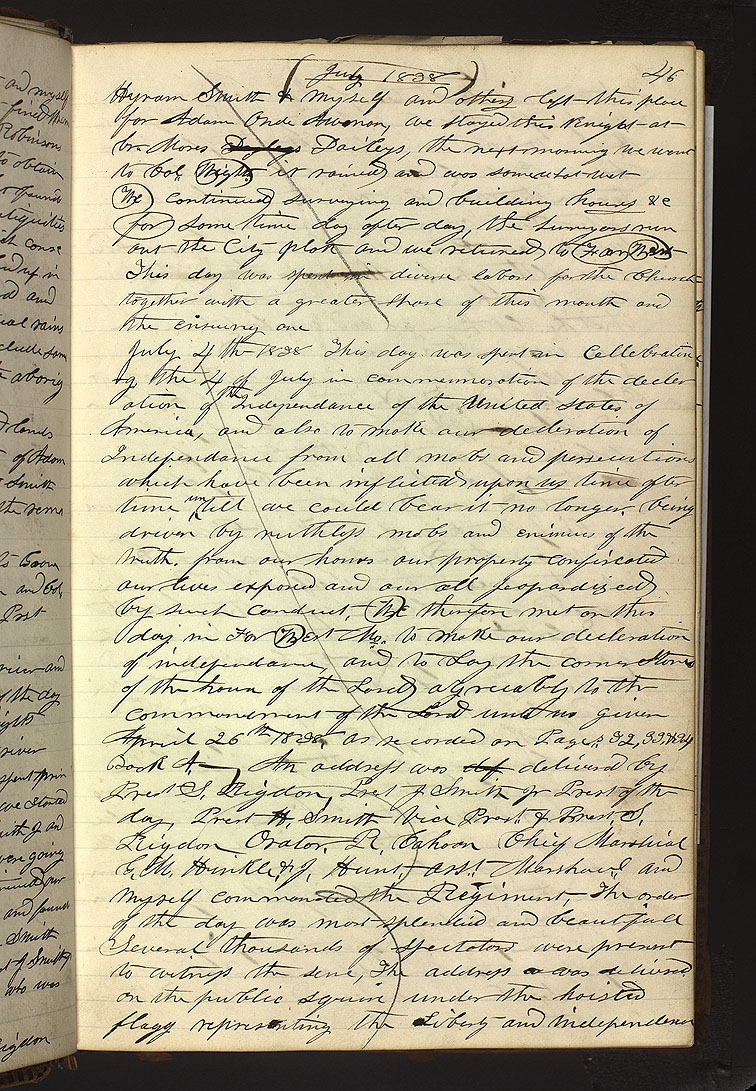 July 1838
46
Hyram Smith & myself and others left this place
for Adam Ondi Awman, we stayed this Knight at
br Mores Dayleys Daileys, the next morning we went
to Col. Wights it rained and was somewhat wet
We continued surveying and building houses &c
for some time day after day, the Surveyors run
out the City plott and we returned to Far West
This day was spent in diverse labors for the Church
together with a greater share of this month and
the ensueing one
July 4th 1838 This day was spent in Cellebratin
g the 4 of July in commemoration of the decler
ation of the Independance of the United States of
America, and also to make our decleration of
Independance from all mobs and persecutions
which have been inflicted upon us time after
time untill we could bear it no longer. being
driven by ruthless mobs and enimies of the
truth. from our homes our property confiscated
our lives exposed and our all jeopardized
by such conduct, We therefore met on this
day in Far West Mo. to make our decleration
of independance, and to Lay the corner Stones
of the house of the Lord agreeably to the
commandment of the Lord unto us given
April 26th 1838, as recorded on Pages 32, 33, & 34
Book A. An address was delivered by
Prest S. Rigdon, Prest J Smith Jr Prest of the
day, Prest H. Smith Vice Prest & Prest S.
Rigdon Orator. R. Cahoon Chief Marshial
G. M. Hinkle & J. Hunt, asst Marshals and
myself commanded the Regiment, The order
of the day was most splendid and beautifull
Several thousands of spectators were present
to witness the sene, The address was delivered
on the public square under the hoisted
flagg representing the Liberty and independence
and myself
Robinson
to obtain
of Adam
Smith
and Col
Prest
river and
of the day
river
we started
were going
and found
Smith
who was
Rigdon